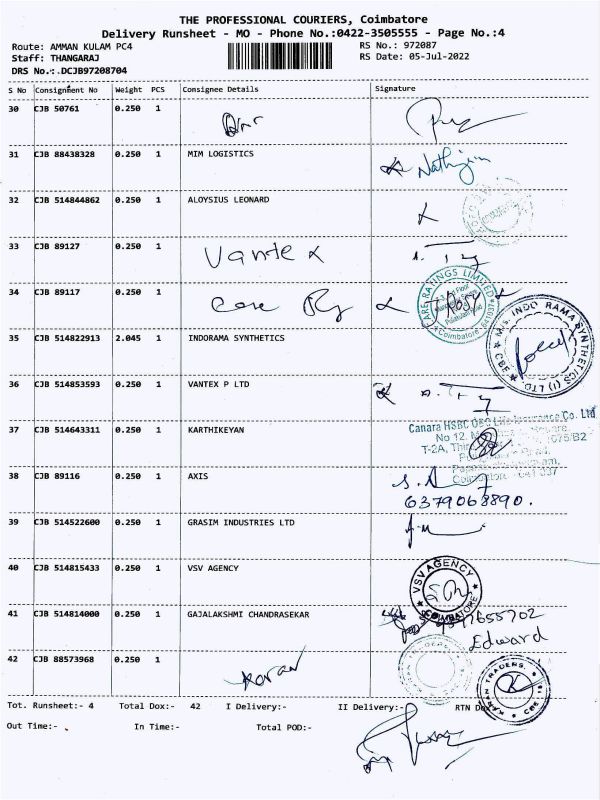 THE PROFESSIONAL COURIERS, Coimbatore
Delivery Runsheet - MO - Phone No.:0422-3505555 - Page No.:4
Route: AMMAN KULAM PC4 RS No.: 972087
Staff: THANGARAJ RS Date: 05-Jul-2022
DRS No.: DCJB97208704
S No Consignment No Weight PCS Consignee Details Signature
30 CJB 50761 0.250 1
31 CJB 88438328 0.250 1 MIM LOGISTICS
32 CJB 514844862 0.250 1 ALOYSIUS LEONARD
33 CJB 89127 0.250 1 Vantex
34 CJB 89117 0.250 1 Care
CARE RATINGS LIMITED
Coimbatore
M/s. INDO RAMA SYNTHETICS (I) LTD. CBE
35 CJB 514822913 2.045 1 INDORAMA SYNTHETICS
36 CJB 514853593 0.250 1 VANTEX P LTD
37 CJB 514643311 0.250 1 KARTHIKEYAN
Canara HSBC OBC Life Insurance Co. Ltd
No 12,
T-2A,
Coimbatore - 641 037
38 CJB 89116 0.250 1 AXIS
6379068890.
39 CJB 514522600 0.250 1 GRASIM INDUSTRIES LTD
40 CJB 514815433 0.250 1 VSV AGENCY
VSV AGENCY
COIMBATORE
41 CJB 514814000 0.250 1 GAJALAKSHMI CHANDRASEKAR
Edward
42 CJB 88573968 0.250 1 Karan
KARAN TRADERS, CBE
Tot. Runsheet:- 4 Total Dox:- 42 I Delivery:- II Delivery:- RTN
Out Time:- In Time:- Total POD:-